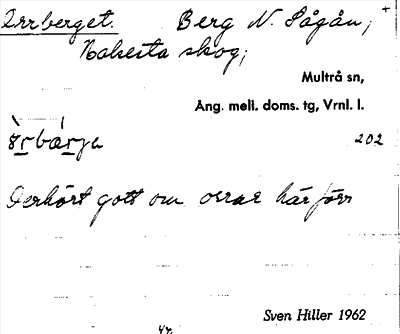 Orrberget. Berg N. Sågån, +
Nolresta skog;
Multrå sn,
Ång. mell. doms. tg, Vrnl. l.
202
Oerhört gott om orrar här förr
Sven Hiller 1962